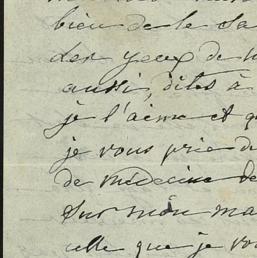 bien de le sa
des yeux de
aussi, dites à
je l'aime et q
je vous prie d
de médecine de
sur mon ma
celle que je vo